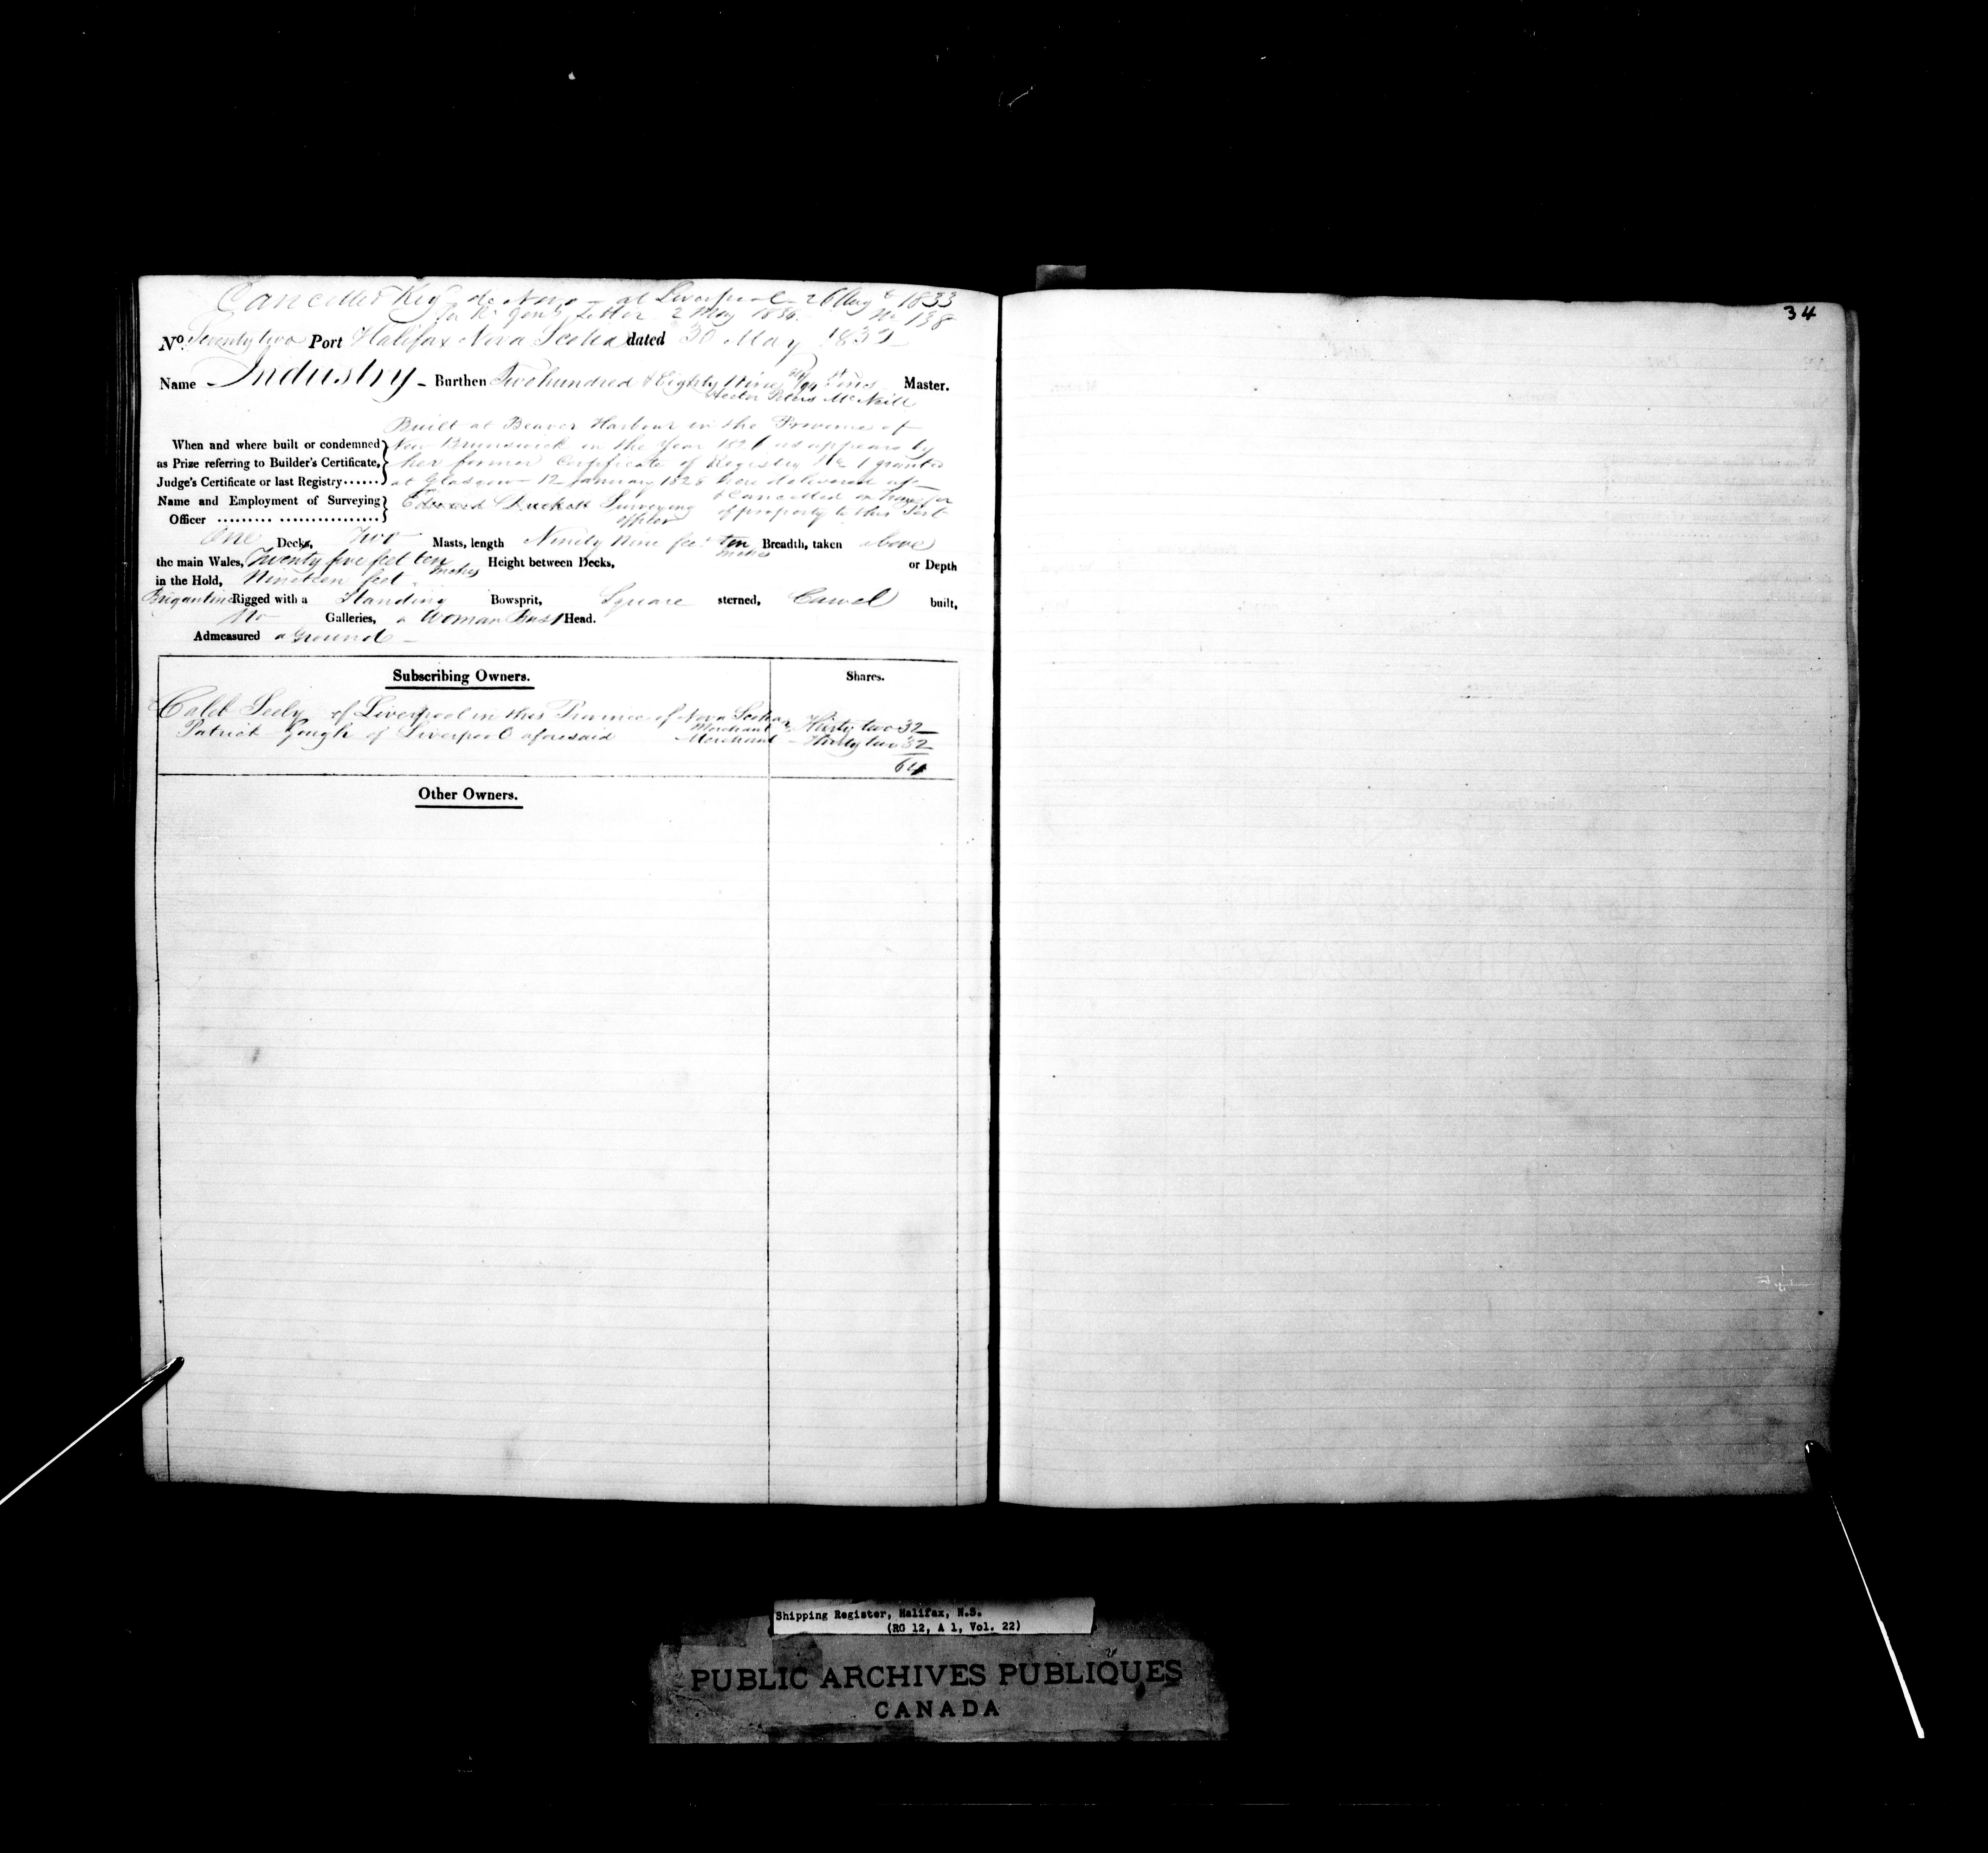 Cancelled Reg de Novo at Liverpool 26 Aug 1833
Letter 2 May 1834 No 138
No. Seventy two Port Halifax Nova Scotia dated 30 May 183
Name Industry Burthen Two hundred & Eighty Nine /94 Tons Master.
Hector Peters McNeill
Built at Beaver Harbour in the Province of
When and where built or condemned New Brunswick in the Year 182 as appears by
as Prize referring to Builder's Certificate, her former Certificate of Registry No 1 granted
Judge's Certificate or last Registry...... at Glasgow 12 January 1828 here delivered up
Name and Employment of Surveying Edward Duckett Surveying & Cancelled
Officer ......... ................. officer of property to this Port
One Decks, Two Masts, length Ninety Nine feet ten Breadth, taken above
inches
the main Wales, Twenty five feet ten inches Height between Decks, or Depth
in the Hold, Nineteen feet
Brigantine Rigged with a Standing Bowsprit, Square sterned, Carvel built,
No Galleries, a Woman Bust Head.
Admeasured a Ground
Subscribing Owners. Shares.
Caleb Seely of Liverpool in this Province of Nova Scotia
Merchant Thirty two 32
Patrick Gough of Liverpool aforesaid Merchant Thirty two 32
64
Other Owners.
34
Shipping Register, Halifax, N.S.
(RG 12, A 1, Vol. 22)
PUBLIC ARCHIVES PUBLIQUES
CANADA